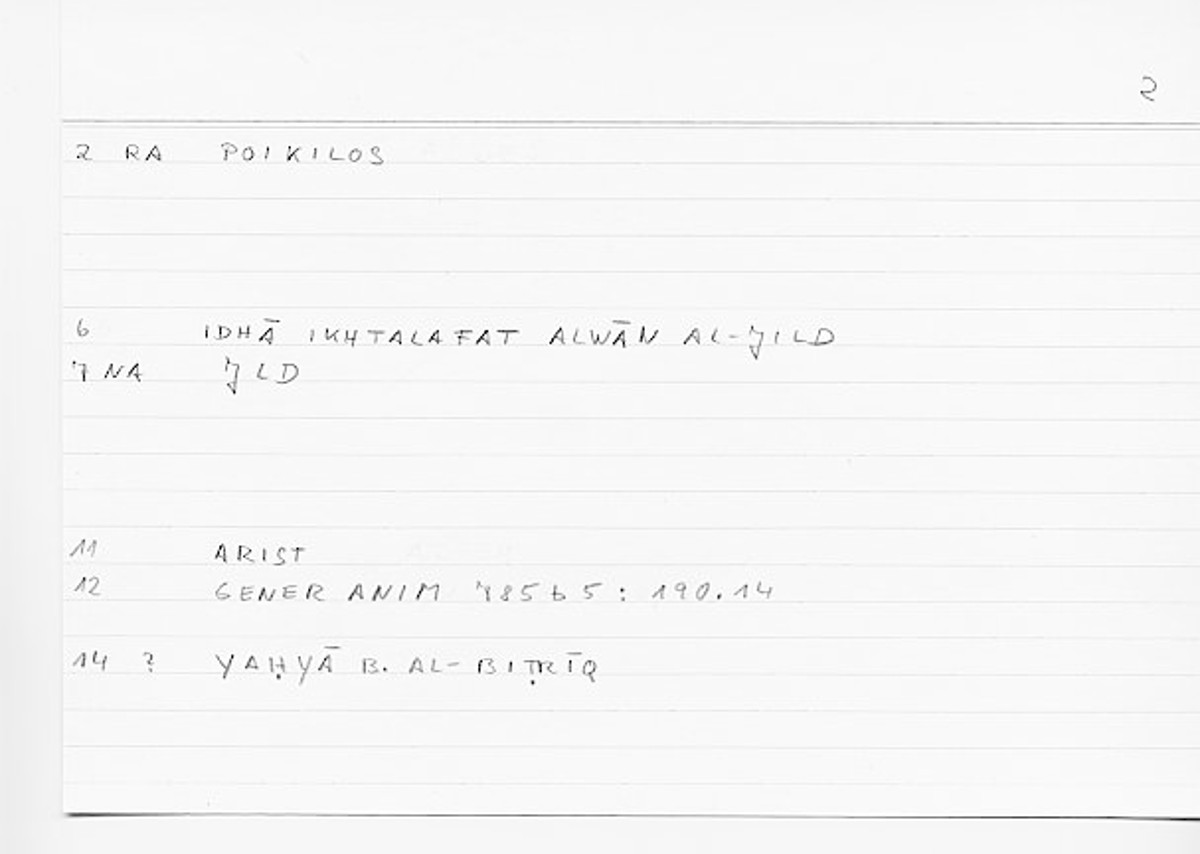 2
2 RA POIKILOS
6 IDHĀ IKHTALAFAT ALWĀN AL-JILD
7 NA JLD
11 ARIST
12 GENER ANIM 785b5: 190.14
14 ? YAḤYĀ B. AL-BIṬRĪQ